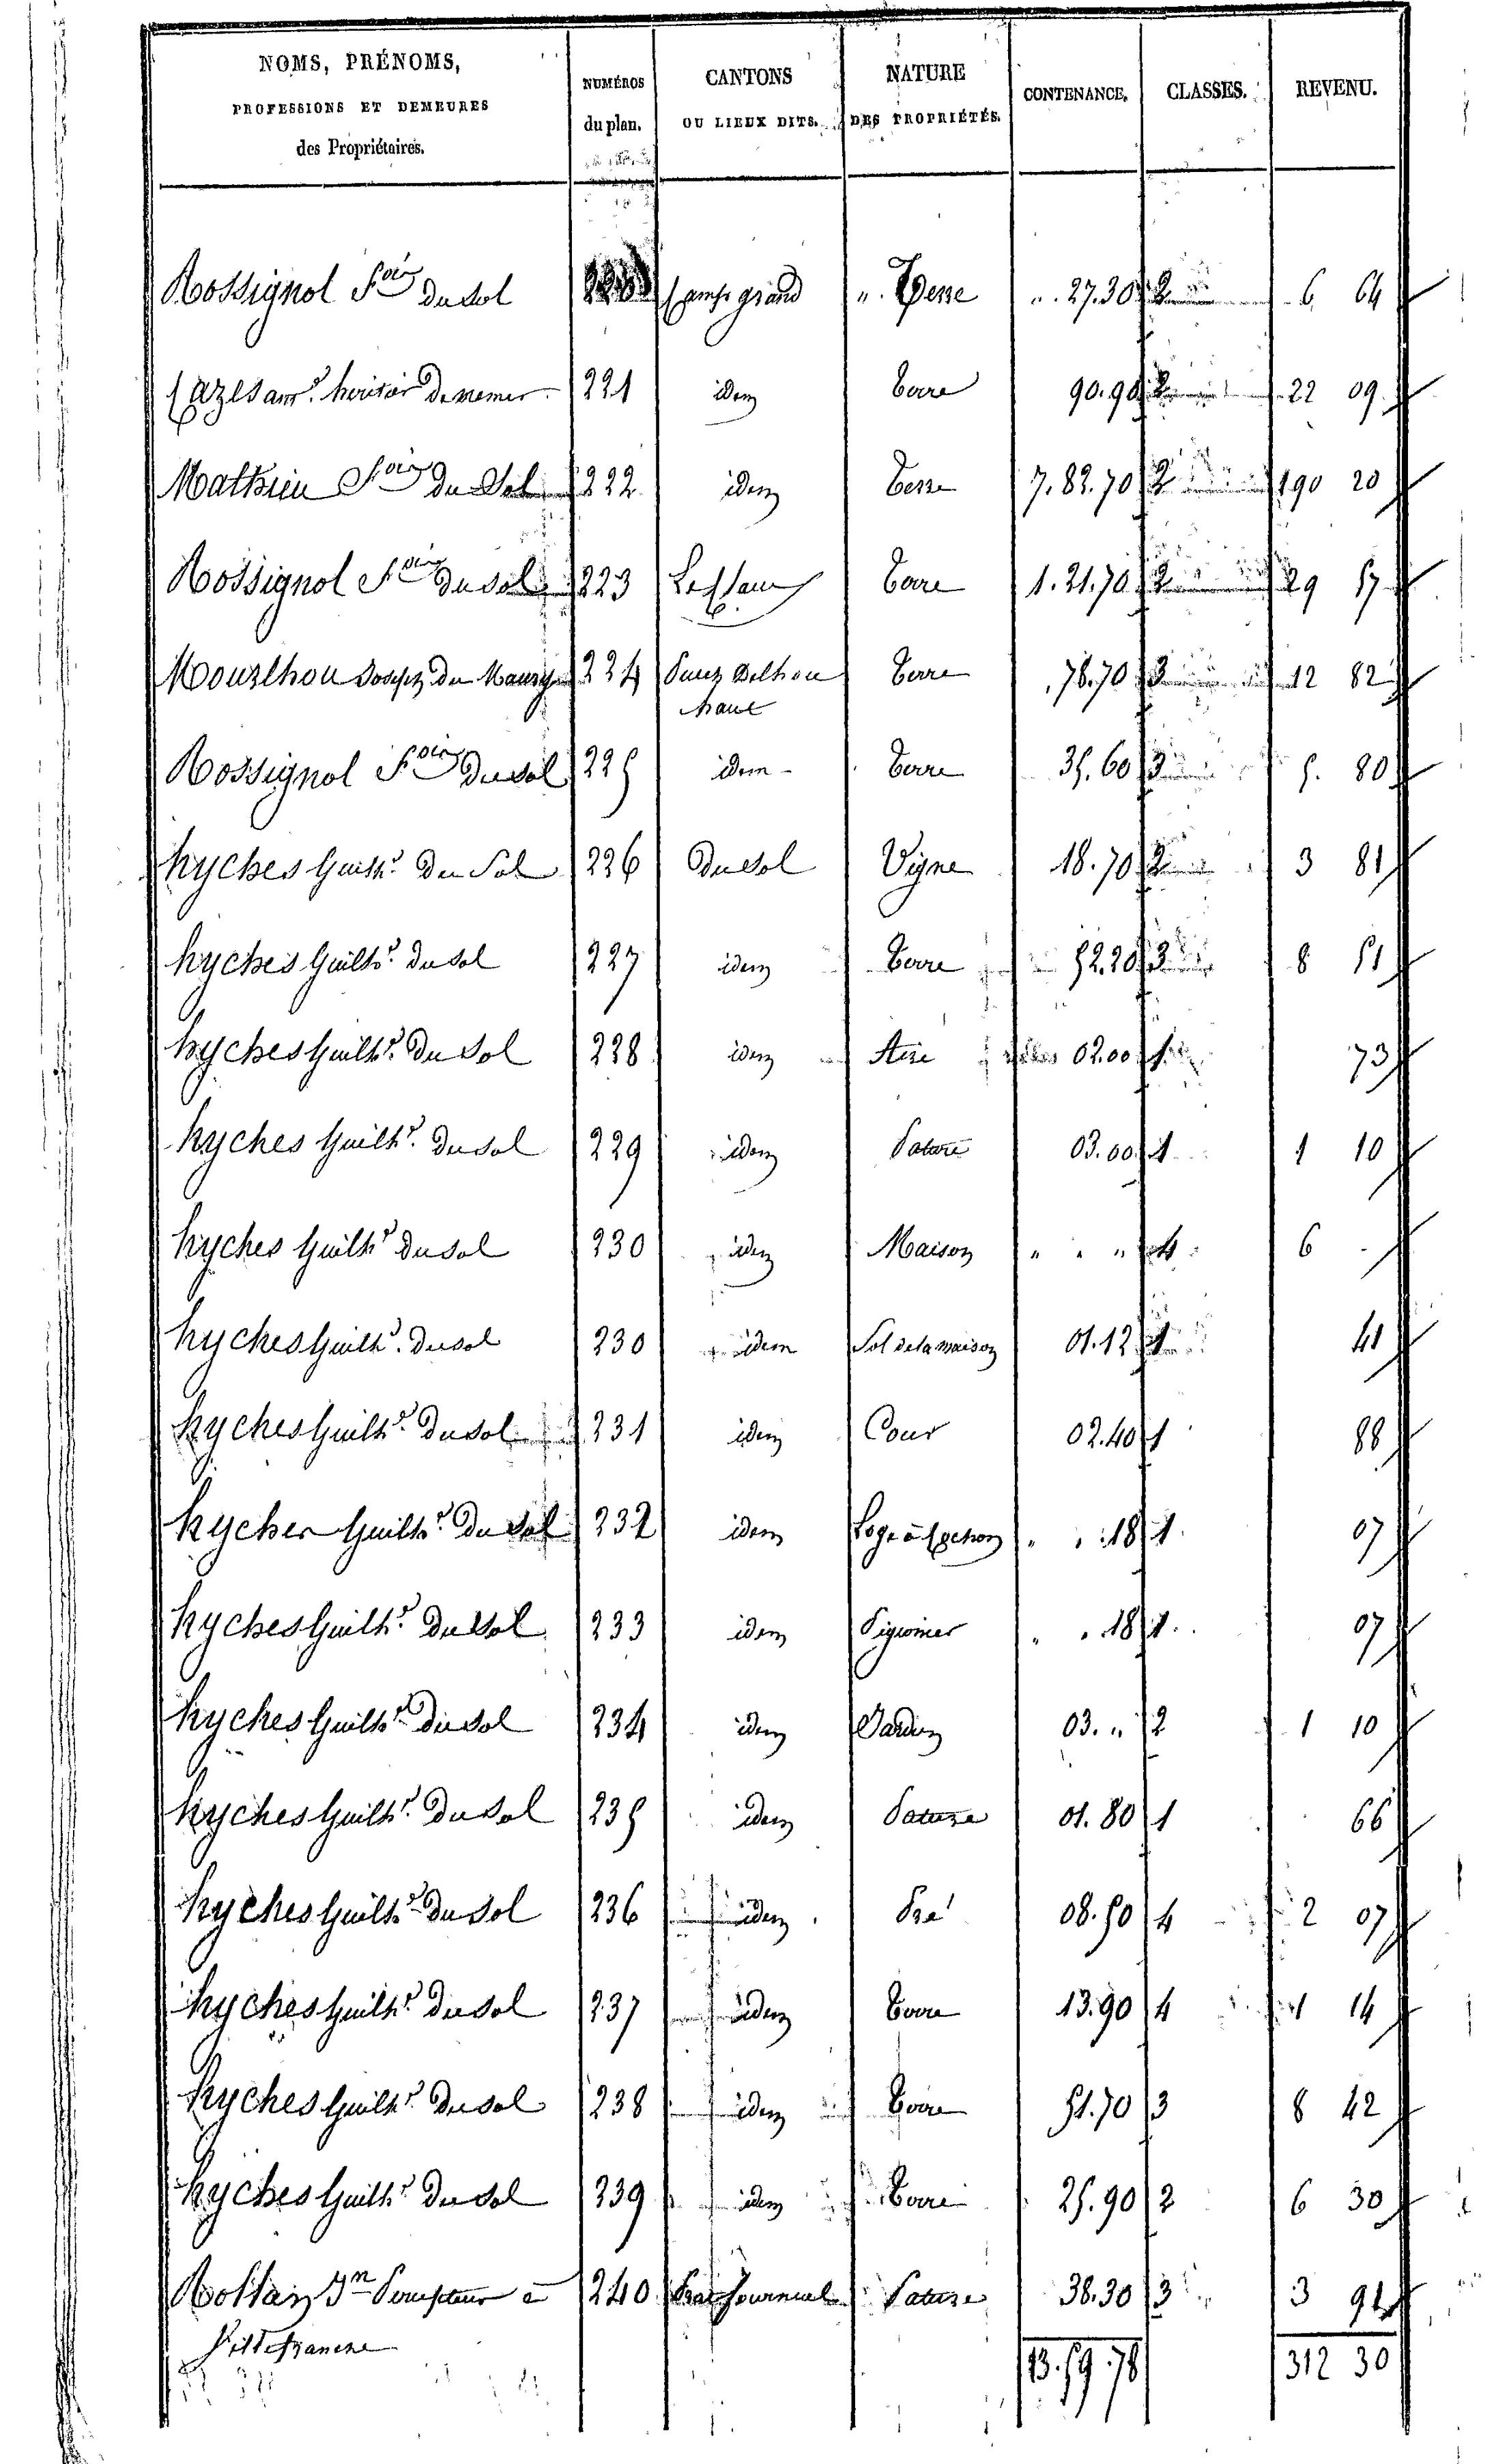 NOMS, PRÉNOMS, PROFESSIONS ET DEMEURES des Propriétaires. NUMÉROS du plan. CANTONS OU LIEUX DITS. NATURE DES PROPRIÉTÉS. CONTENANCE. CLASSES. REVENU.
Rossignol fois du Sol Camp grand " Terre " 27.30 2 6 64
Cazes 221 idem terre 90.90 2 22 09
Mathieu fois du Sol 222 idem terre 7.82.70 2 190 20
Rossignol fois du Sol 223 terre 1.21.70 2 29 57
Mouzlhou Joseph du 224 terre 78.70 3 12 82
haut
Rossignol fois du Sol 225 idem terre 35.60 3 5. 80
hyches Guilh.e du Sol 226 du Sol Vigne 18.70 2 3 81
hyches Guilh.e du Sol 227 idem terre 52.20 3 8 51
hyches Guilh.e du Sol 228 idem Aire 02.00 1 73
hyches Guilh.e du Sol 229 idem Pature 03.00 1 1 10
hyches Guilh.e du Sol 230 idem Maison " " " 6
hyches Guilh.e du Sol 230 idem Sol de la maison 01.12 1 41
hyches Guilh.e du Sol 231 idem Cour 02.40 1 88
hyches Guilh.e du Sol 232 idem Loge à Cochon " " 18 1 07
hyches Guilh.e du Sol 233 idem Pigionier " " 18 1 07
hyches Guilh.e du Sol 234 idem Jardin 03. " 2 1 10
hyches Guilh.e du Sol 235 idem Pature 01.80 1 66
hyches Guilh.e du Sol 236 idem Pré 08.50 4 2 07
hyches Guilh.e du Sol 237 idem terre 13.90 4 1 14
hyches Guilh.e du Sol 238 idem terre 51.70 3 8 42
hyches Guilh.e du Sol 239 idem terre 25.90 2 6 30
Jn Percepteur à 240 Pature 38.30 3 3 91
Villefranche
13.59.78 312 30